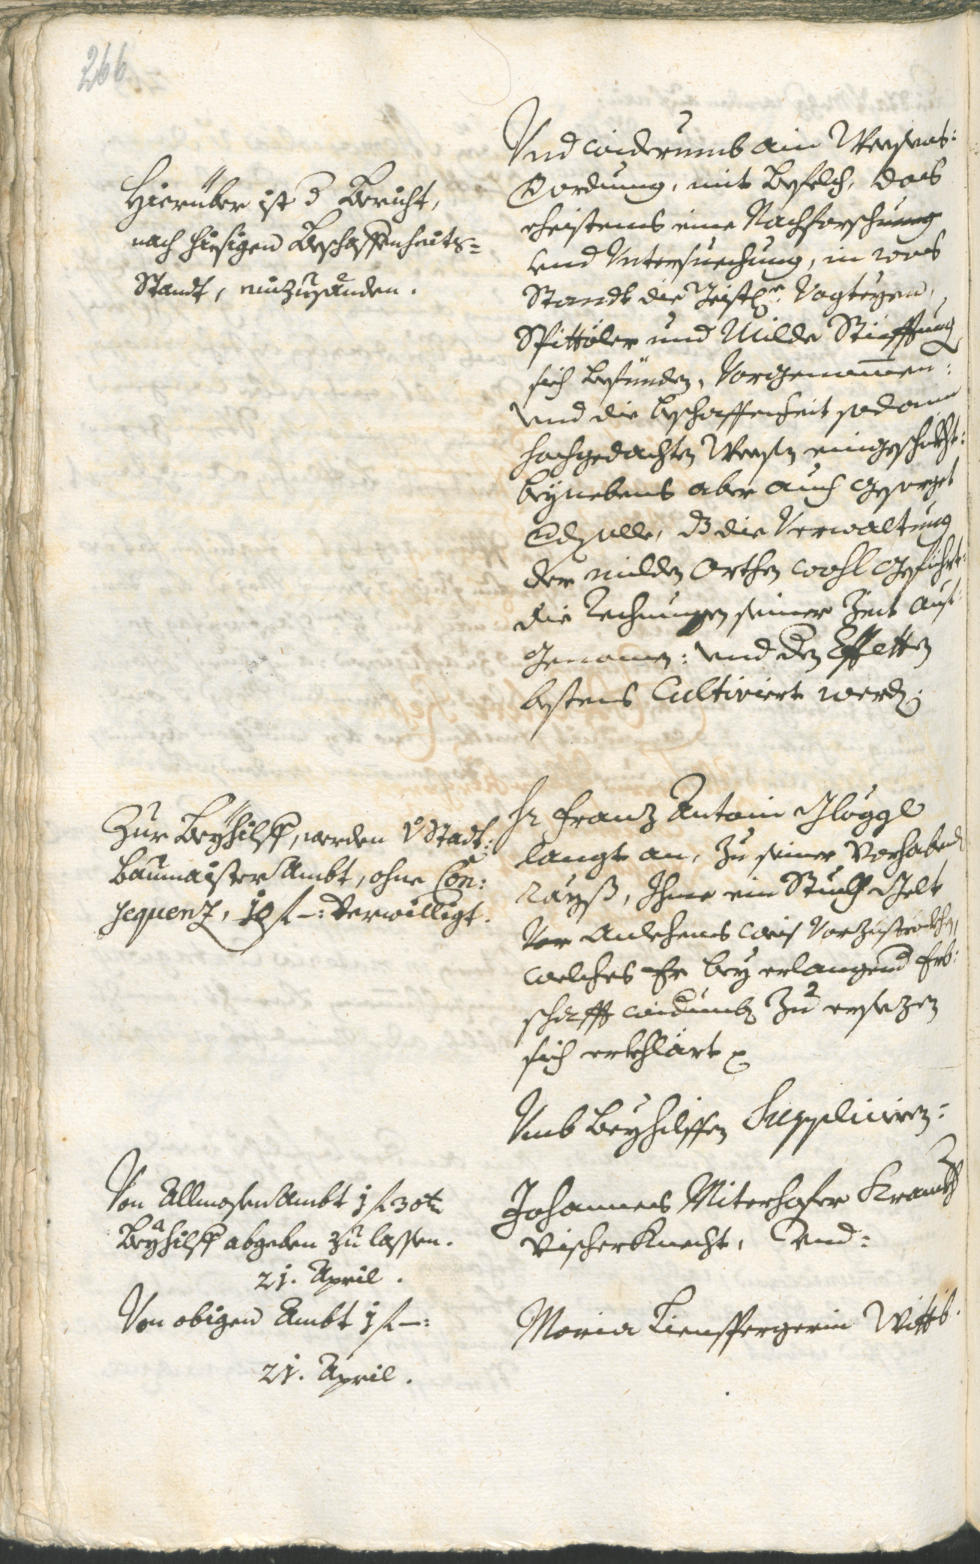 266
Hierüber ist d Bericht,
nach hiesigen Beschaffenheits-
Standt, einzusenden.
Vnd widerumb ain
Verordnung, mit Befelch, das
ehistens eine Nachforschung
vnd Vntersuechung, in was
Standt die Geistl: Vogteyen,
Spittäler und Milde Stüfftung
sich befünden, Vorgenommen:
vnd die beschaffenheit sodann
hochgedachten eingeschickht:
beynebens aber auch gesorget
die Verwaltung
der milden Orthen wohl geführt:
die Rechnungen seiner Zeit auf
genomen: vnd den Effetten
bestens Cultiviert werd.
Zur Beyhilff, werden v Stadt:
Baumaister Ambt, ohne Con:
sequenz, 10 f —: verwilligt.
Hr Franz Antoni Gloggl
langt an, Zu seiner Vorhabend
Rayß, Ihme ein Stuckh Gelt
Vor Anlehens weis Vorzustreckhen,
welches Er bey erlangend Erb:
schafft widerumb Zu ersezen
sich erkhlärt
Vmb Beyhilffen Suppliciren:
Von Allmosen Ambt 1 f 30 x
Beyhilff abgeben zu lassen.
21. April.
Johannes Miterhofer Krankh
Vischer Knecht, Vnd:
Von obigen Ambt 1 f —:
21. April.
Maria Lienspergerin Wittb.